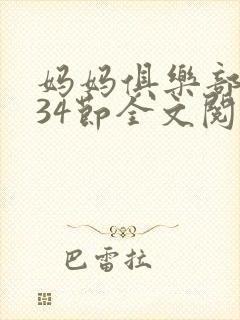 妈妈俱樂部
34節全文閱
巴雷拉